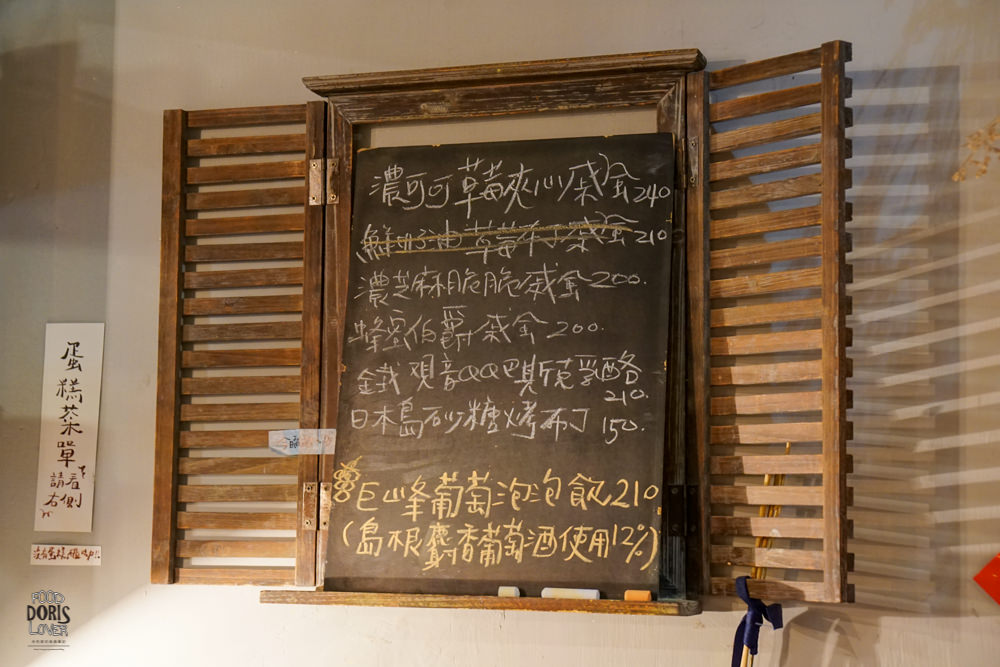 濃可可草莓夾心戚金240
鮮奶油草莓布丁戚金210
濃芝麻脆脆戚金200.
蜂蜜伯爵戚金200.
鐵觀音QQ巴斯克乳酪
210.
日本島砂糖烤布丁150.
巨峰葡萄泡泡飲210
(島根麝香葡萄酒使用12%)
蛋糕菜單
請看
右側
FOOD
DORIS
LOVER